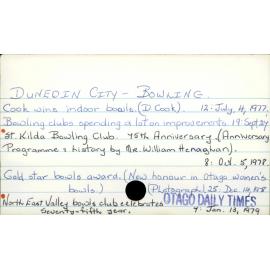 DUNEDIN CITY - BOWLING.
Cook wins indoor bowls. (D. Cook). 12: July, 4, 1977.
Bowling clubs spending a lot on improvements 19: Sept 27
St. Kilda Bowling Club. 75th Anniversary. (Anniversary
Programme & history by Mr. William Henaghan).
8: Oct. 5, 1978.
Gold star bowls award. (New honour in Otago women's
bowls.) (Photograph) 25: Dec. 14, 1978.
North East Valley bowls club celebrates
Seventy-fifth year. 7: Jan. 13, 1979
OTAGO DAILY TIMES